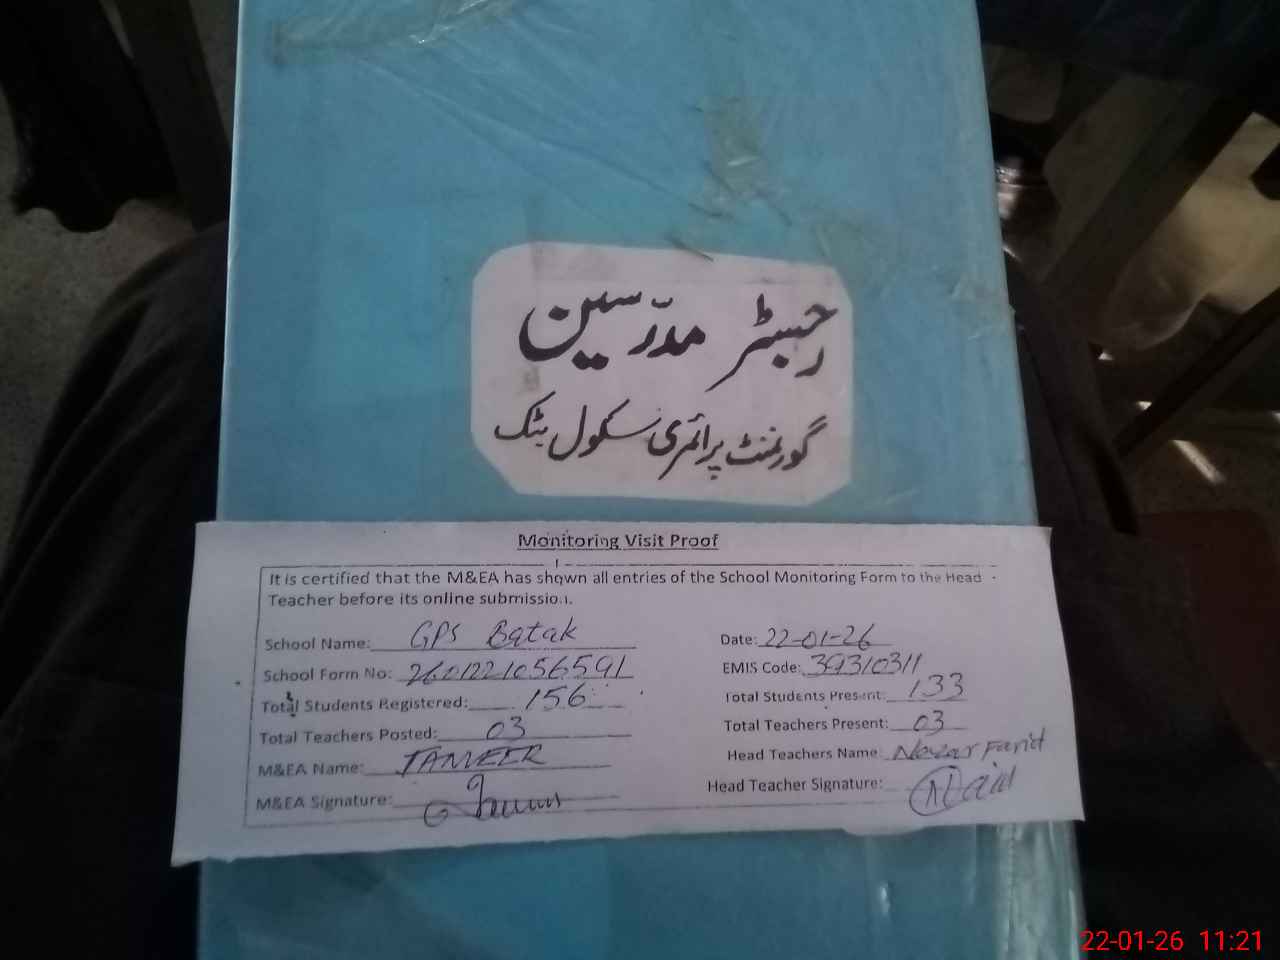 رجسٹر مدرّسین
گورنمنٹ پرائمری سکول بٹک
Monitoring Visit Proof
It is certified that the M&EA has shown all entries of the School Monitoring Form to the Head
Teacher before its online submission.
School Name: GPS Batak Date: 22-01-26
School Form No: 2601221056591 EMIS Code: 39310311
Total Students Registered: 156 Total Students Present: 133
Total Teachers Posted: 03 Total Teachers Present: 03
M&EA Name: TANVEER Head Teachers Name: Nazar Farid
M&EA Signature: Head Teacher Signature:
22-01-26 11:21